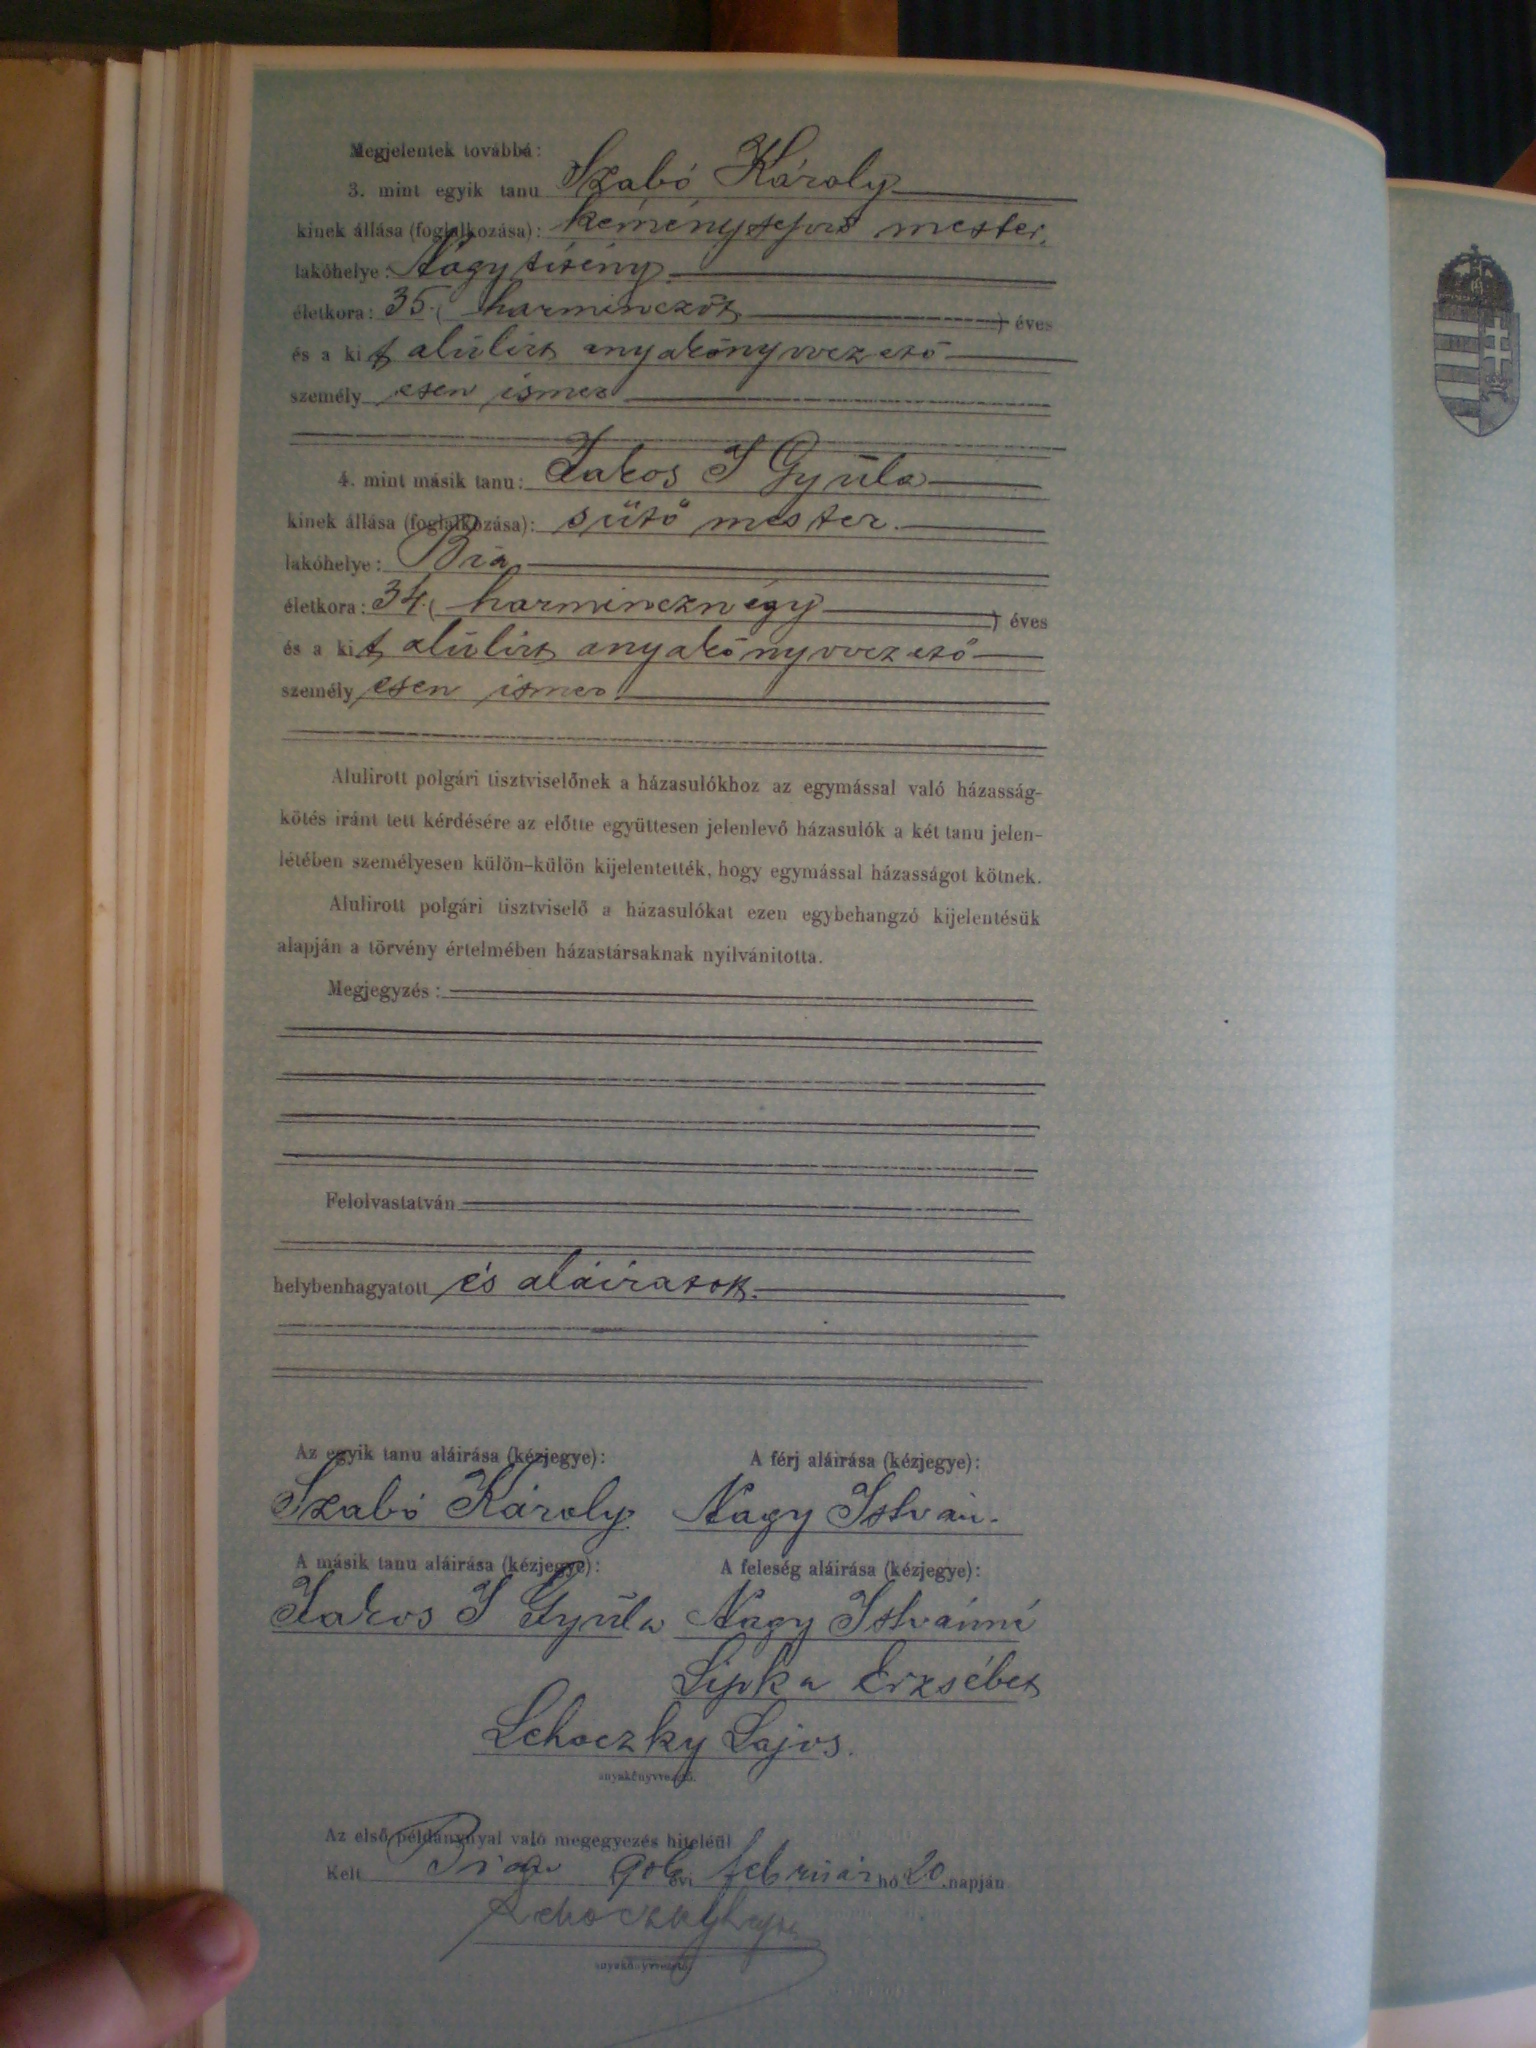 Megjelentek továbbá:
3. mint egyik tanu Szabó Károly
kinek állása (foglalkozása): kéményseprő mester.
lakóhelye: Nagytétény
életkora: 35 ( harminczöt ) éves
és a kit alúlirt anyakönyvvezető
személyesen ismer
4. mint másik tanu: Jakos I Gyúla
kinek állása (foglalkozása): sütő mester.
lakóhelye: Bia
életkora: 34. ( harmincznégy ) éves
és a kit alúlirt anyakönyvvezető
személyesen ismer.
Alulirott polgári tisztviselőnek a házasulókhoz az egymással való házasság-
kötés iránt tett kérdésére az előtte együttesen jelenlevő házasulók a két tanu jelen-
létében személyesen külön-külön kijelentették, hogy egymással házasságot kötnek.
Alulirott polgári tisztviselő a házasulókat ezen egybehangzó kijelentésük
alapján a törvény értelmében házastársaknak nyilvánitotta.
Megjegyzés:
Felolvastatván
helybenhagyatott és aláíratott.
Az egyik tanu aláirása (kézjegye): A férj aláirása (kézjegye):
Szabó Károly. Nagy István.
A másik tanu aláirása (kézjegye): A feleség aláirása (kézjegye):
Jakos I Gyúla Nagy Istvánné
Lipka Erzsébet
Lehoczky Lajos.
anyakönyvvezető.
Az első példánynyal való megegyezés hiteléül
Kelt Bia 906 évi február hó 20. napján
Lehoczky Lajos
anyakönyvvezető.